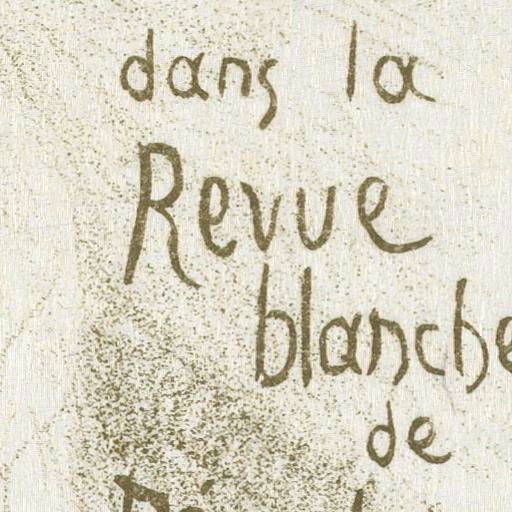 dans la
Revue
blanche
de